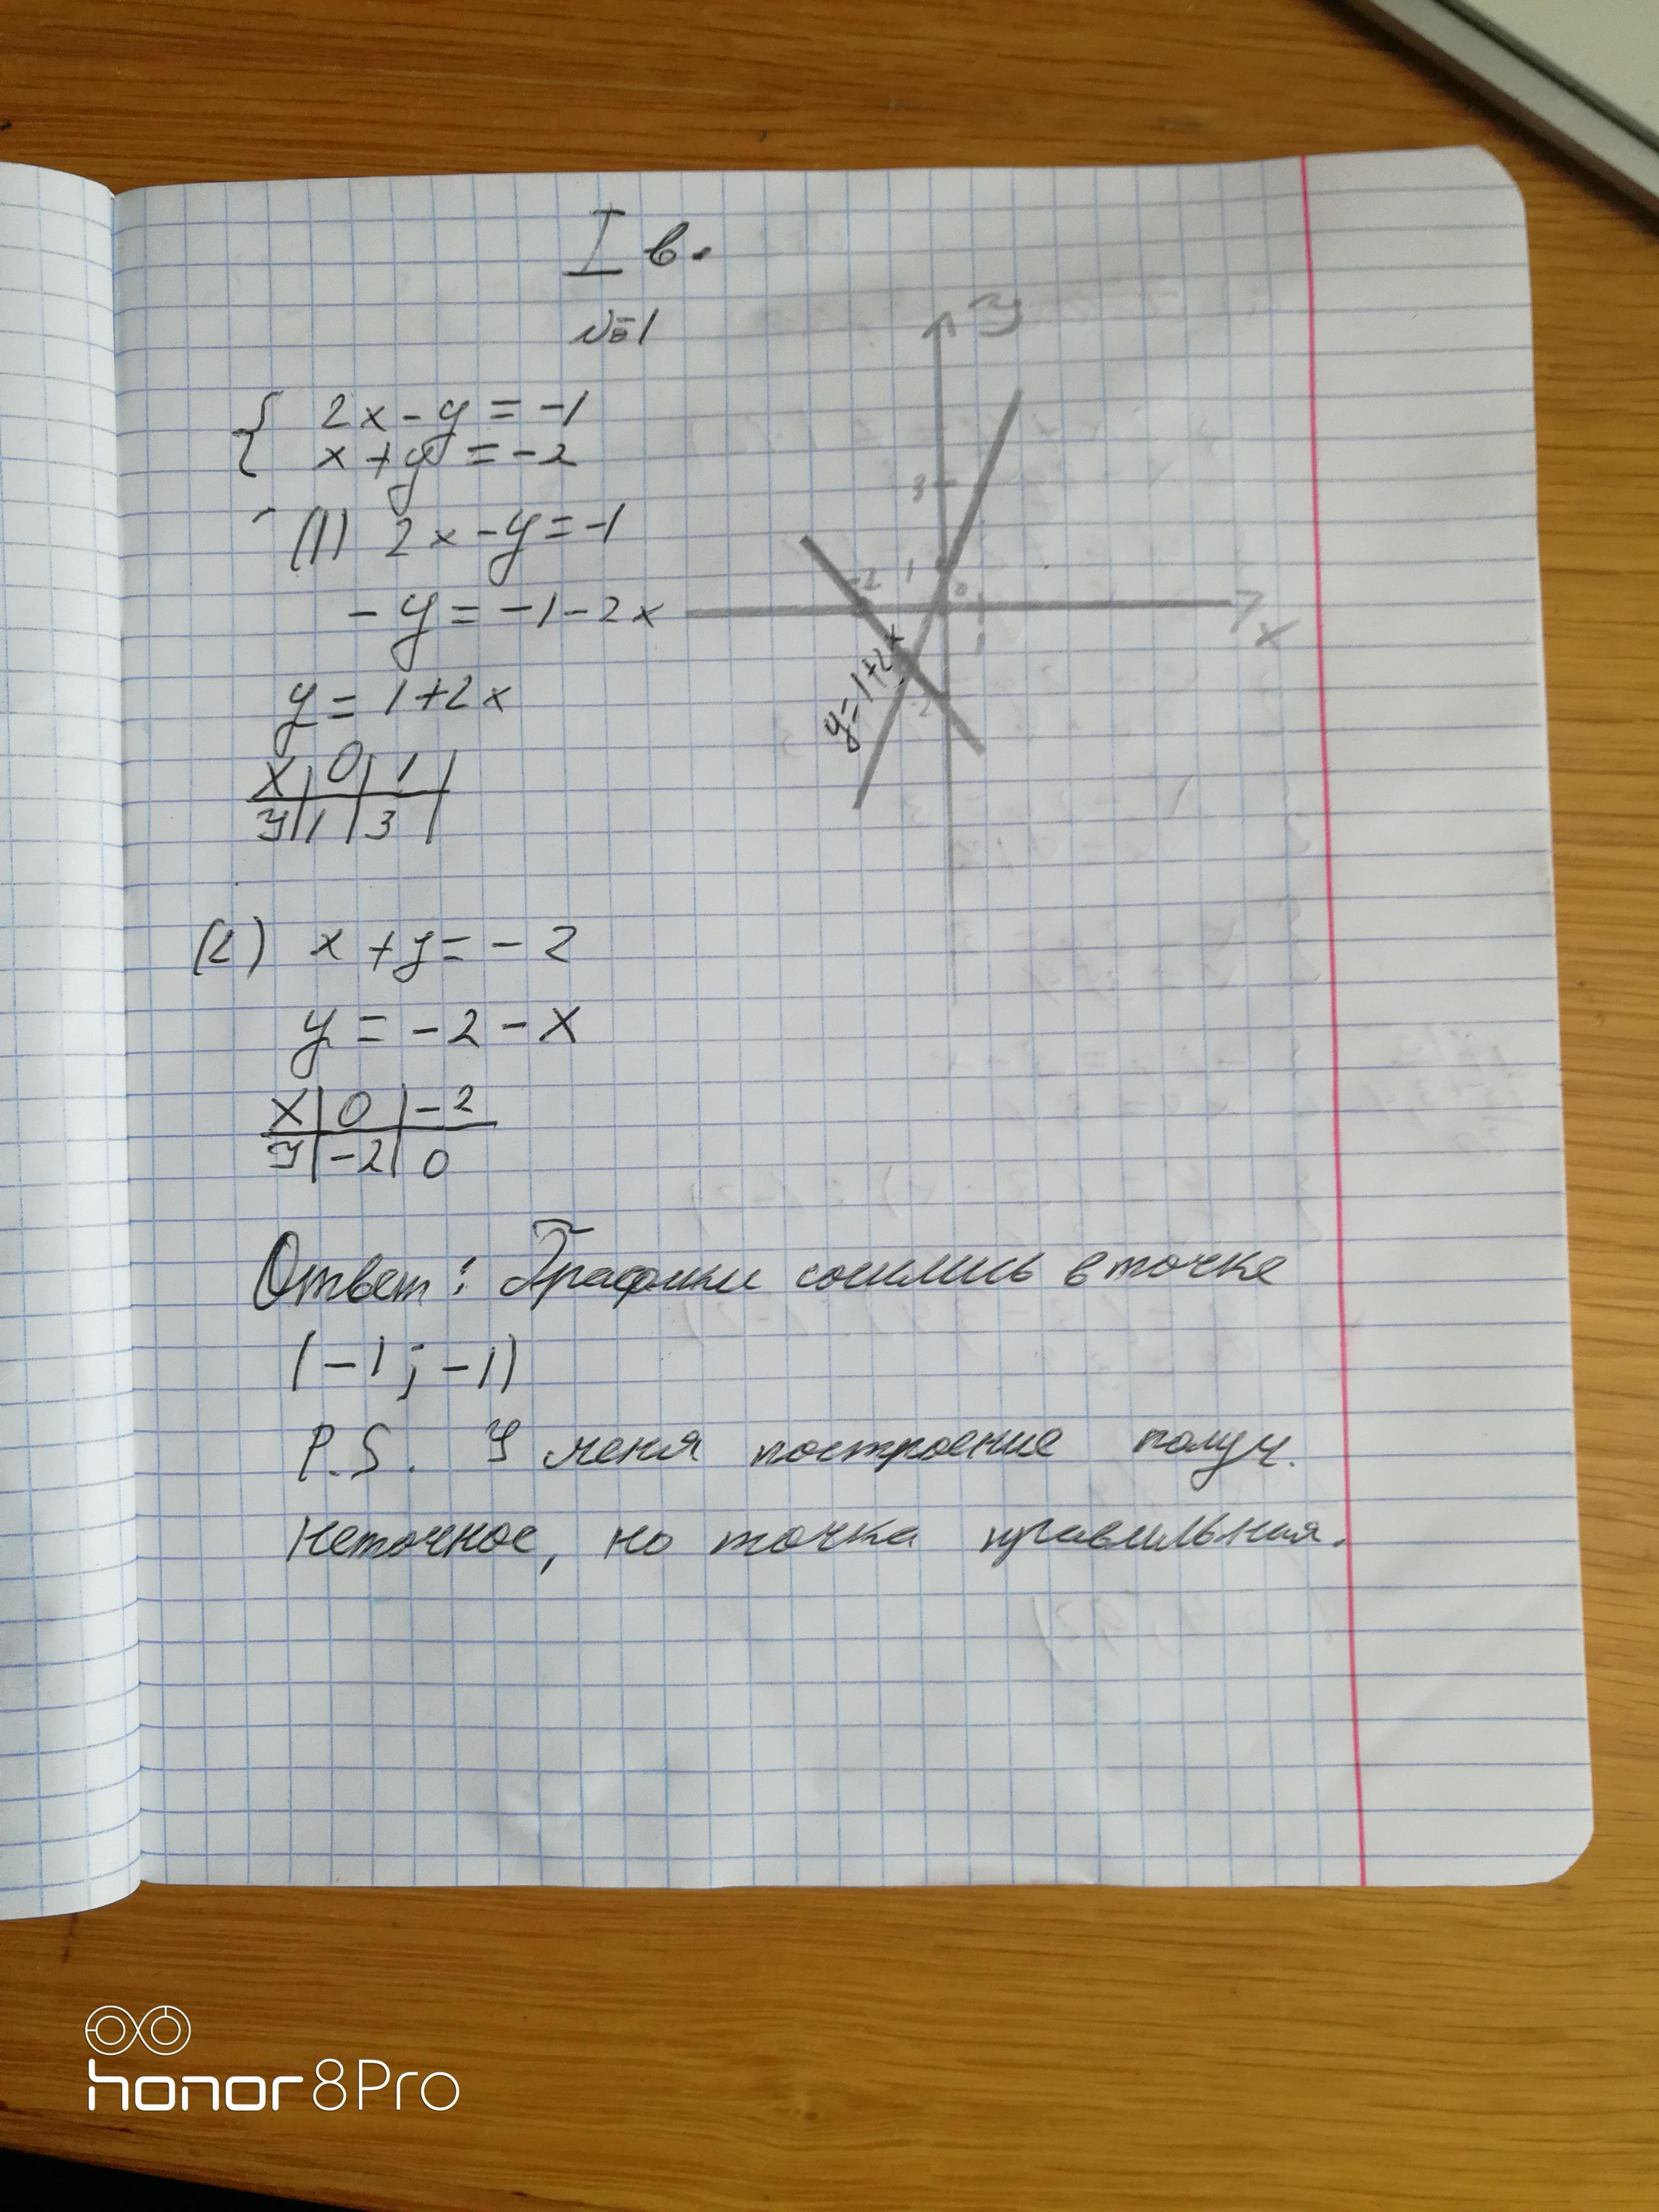 I в.
№1
{ 2x - y = -1
x + y = -2
(1) 2x - y = -1
- y = -1 - 2x
y = 1 + 2x
x | 0 | 1 |
y | 1 | 3 |
(2) x + y = - 2
y = - 2 - x
x | 0 | - 2
y | - 2 | 0
Ответ: Графики сошлись в точке
(-1 ; -1)
P.S. У меня построение получ.
неточное, но точка правильная.
y
3
-2 1 0
1
x
y = 1 + 2x
-2
honor 8 Pro